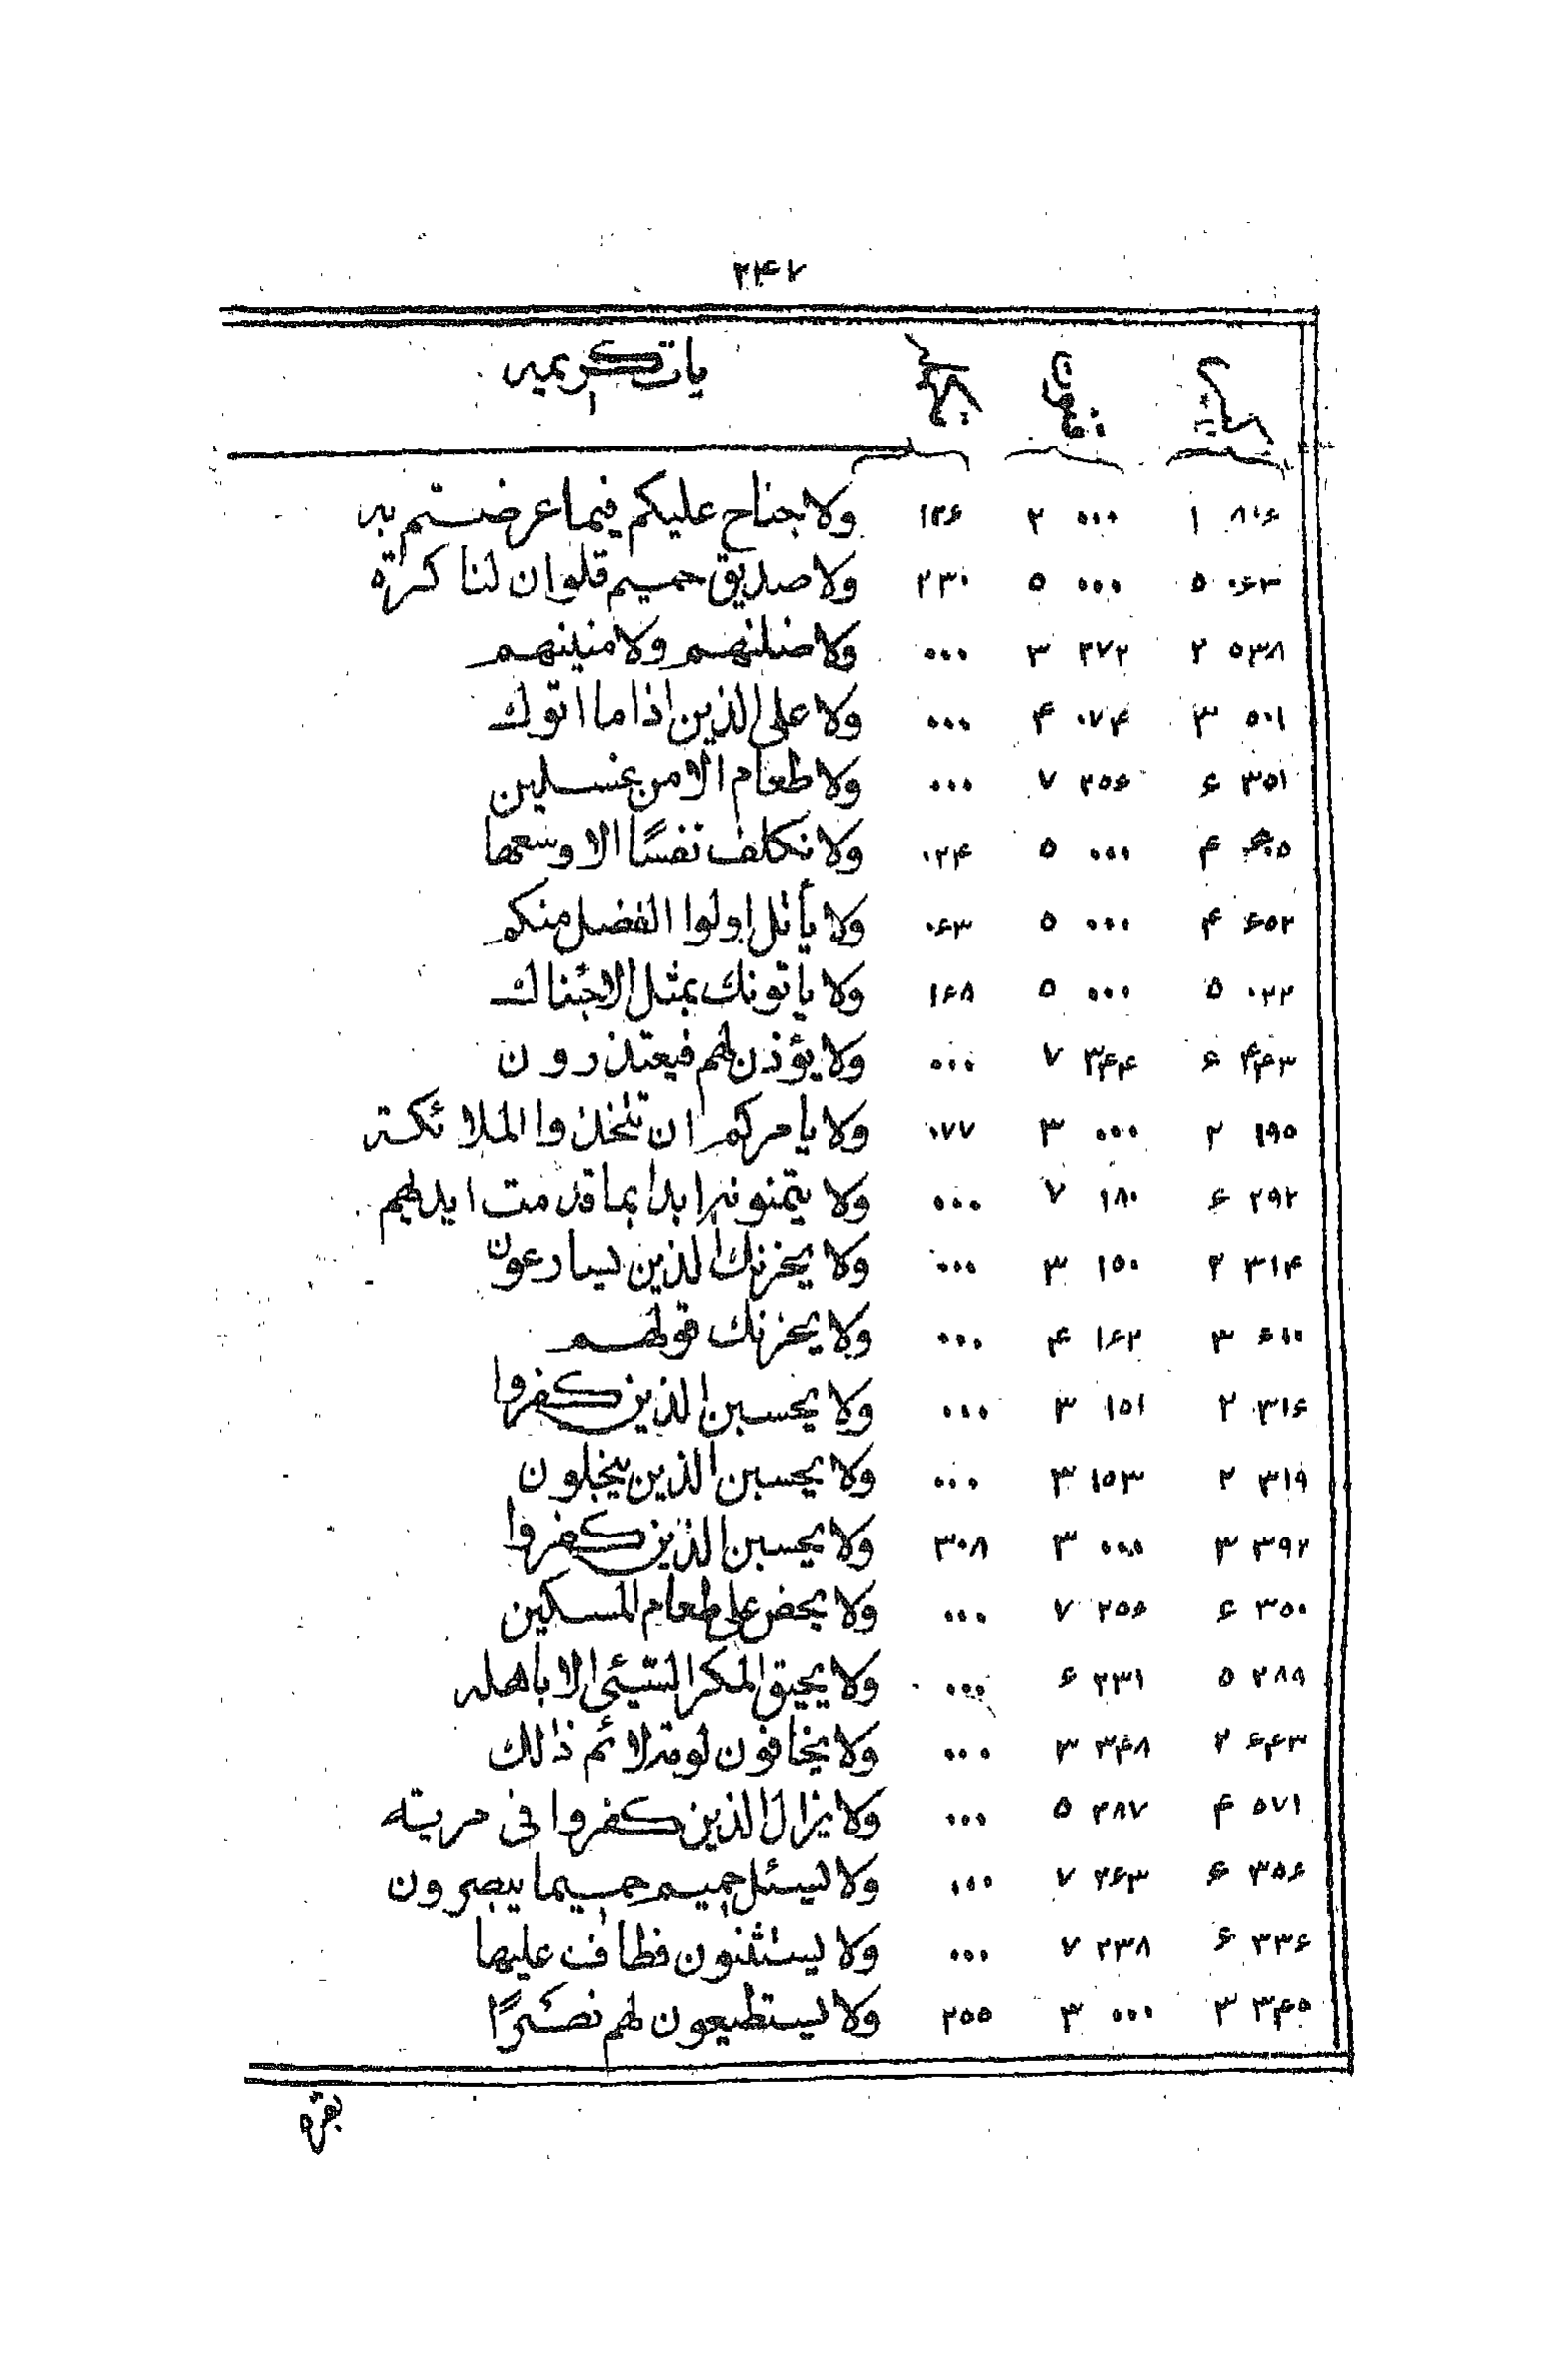 ۲۴۷
یات کریمیه
۸۰۶ ۱ ۰۰۰ ۲ ۱۲۶ ولا جناح علیکم فیما عرضتم به
۰۶۳ ۵ ۰۰۰ ۵ ۲۳۰ ولا صدیق حمیم قلو ان لنا کرة
۵۳۸ ۲ ۲۷۲ ۳ ۰۰۰ ولا ضلنهم ولا منینهم
۵۰۱ ۳ ۰۷۴ ۴ ۰۰۰ ولا علی الذین اذا ما اتوك
۳۵۱ ۶ ۲۵۶ ۷ ۰۰۰ ولا طعام الا من غسلین
۴ ۰۰۰ ۵ ۰۲۴ ولا نکلف نفسًا الا وسعها
۶۵۲ ۴ ۰۰۰ ۵ ۰۶۳ ولا یأتل اولوا الفضل منکم
۰۲۲ ۵ ۰۰۰ ۵ ۱۶۸ ولا یاتونك بمثل الا جئناك
۴۴۳ ۶ ۳۴۴ ۷ ۰۰۰ ولا یؤذن لهم فیعتذرون
۱۹۵ ۲ ۰۰۰ ۳ ۰۷۷ ولا یامرکم ان تتخذوا الملائکة
۲۹۲ ۶ ۱۸۰ ۷ ۰۰۰ ولا یتمنونه ابدا بما قدمت ایدیهم
۳۱۴ ۲ ۱۵۰ ۳ ۰۰۰ ولا یحزنك الذین یسارعون
۳ ۱۶۲ ۴ ۰۰۰ ولا یحزنك قولهم
۳۱۶ ۲ ۱۵۱ ۳ ۰۰۰ ولا یحسبن الذین کفروا
۳۱۹ ۲ ۱۵۳ ۳ ۰۰۰ ولا یحسبن الذین یبخلون
۳۹۲ ۳ ۰۰۰ ۳ ۳۰۸ ولا یحسبن الذین کفروا
۳۵۰ ۶ ۲۵۶ ۷ ۰۰۰ ولا یحض علی طعام المسکین
۲۸۹ ۵ ۲۳۱ ۶ ۰۰۰ ولا یحیق المکر السیئی الا باهله
۶۴۳ ۲ ۳۴۸ ۳ ۰۰۰ ولا یخافون لومة لائم ذالك
۵۷۱ ۴ ۲۸۷ ۵ ۰۰۰ ولا یزال الذین کفروا فی مریته
۳۵۶ ۶ ۲۶۳ ۷ ۰۰۰ ولا یسئل حمیم حمیما یبصرون
۳۳۶ ۶ ۲۳۸ ۷ ۰۰۰ ولا یستثنون فطاف علیها
۳۴۵ ۳ ۰۰۰ ۳ ۲۵۵ ولا یستطیعون لهم نصرًا
بقره